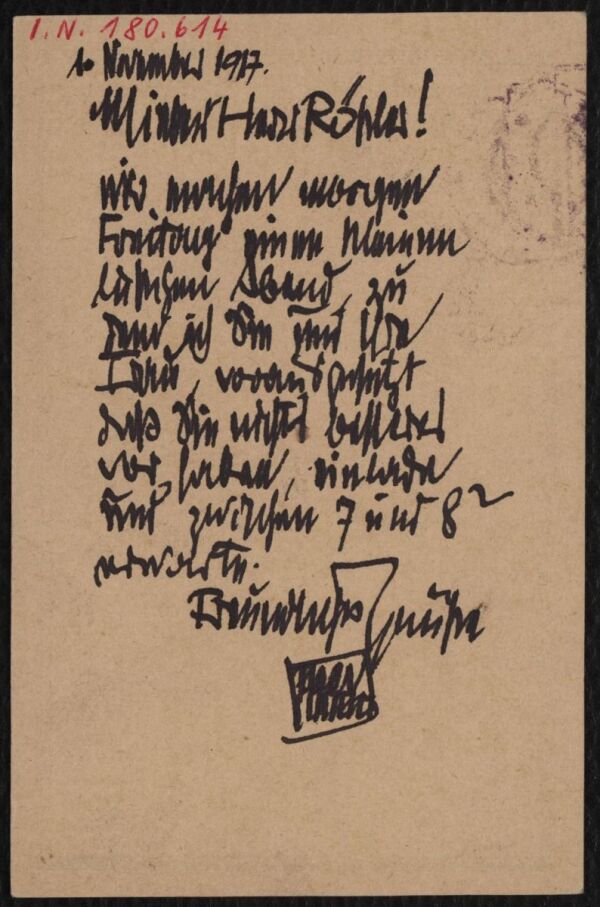 I.N. 180.614
1. November 1917.
Lieber Herr Rößler!
wir machen morgen
Freitag einen kleinen
lustigen Abend, zu
dem ich Sie und Ihre
Frau, vorausgesetzt
daß Sie nichts besseres
vor haben, einlade
und zwischen 7 und 8
erwarte.
Freundliche Grüße